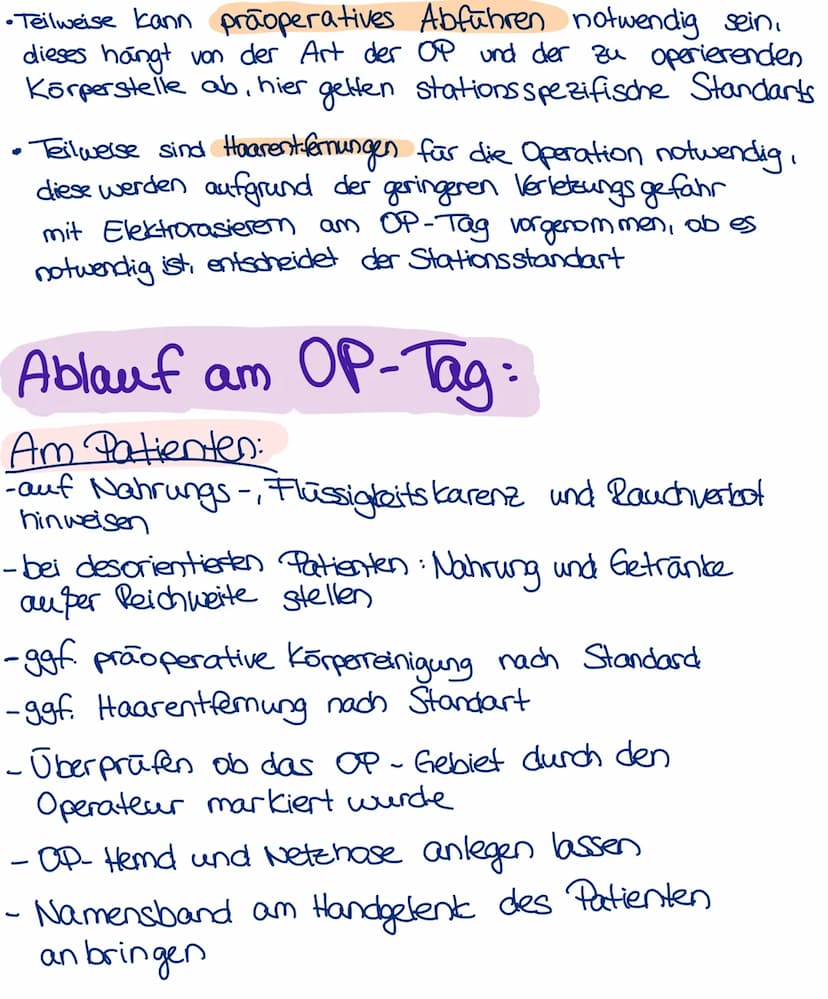 •Teilweise kann präoperatives Abführen notwendig sein,
dieses hängt von der Art der OP und der zu operierenden
Körperstelle ab, hier gelten stationsspezifische Standarts
• Teilweise sind Haarentfernungen für die Operation notwendig,
diese werden aufgrund der geringeren Verletzungsgefahr
mit Elektrorasierern am OP-Tag vorgenommen, ob es
notwendig ist, entscheidet der Stationsstandart
Ablauf am OP-Tag:
Am Patienten:
-auf Nahrungs-, Flüssigkeitskarenz und Rauchverbot
hinweisen
-bei desorientierten Patienten: Nahrung und Getränke
außer Reichweite stellen
-ggf. präoperative Körperreinigung nach Standard
-ggf. Haarentfernung nach Standart
- Überprüfen ob das OP-Gebiet durch den
Operateur markiert wurde
- OP-Hemd und Netzhose anlegen lassen
- Namensband am Handgelenk des Patienten
anbringen